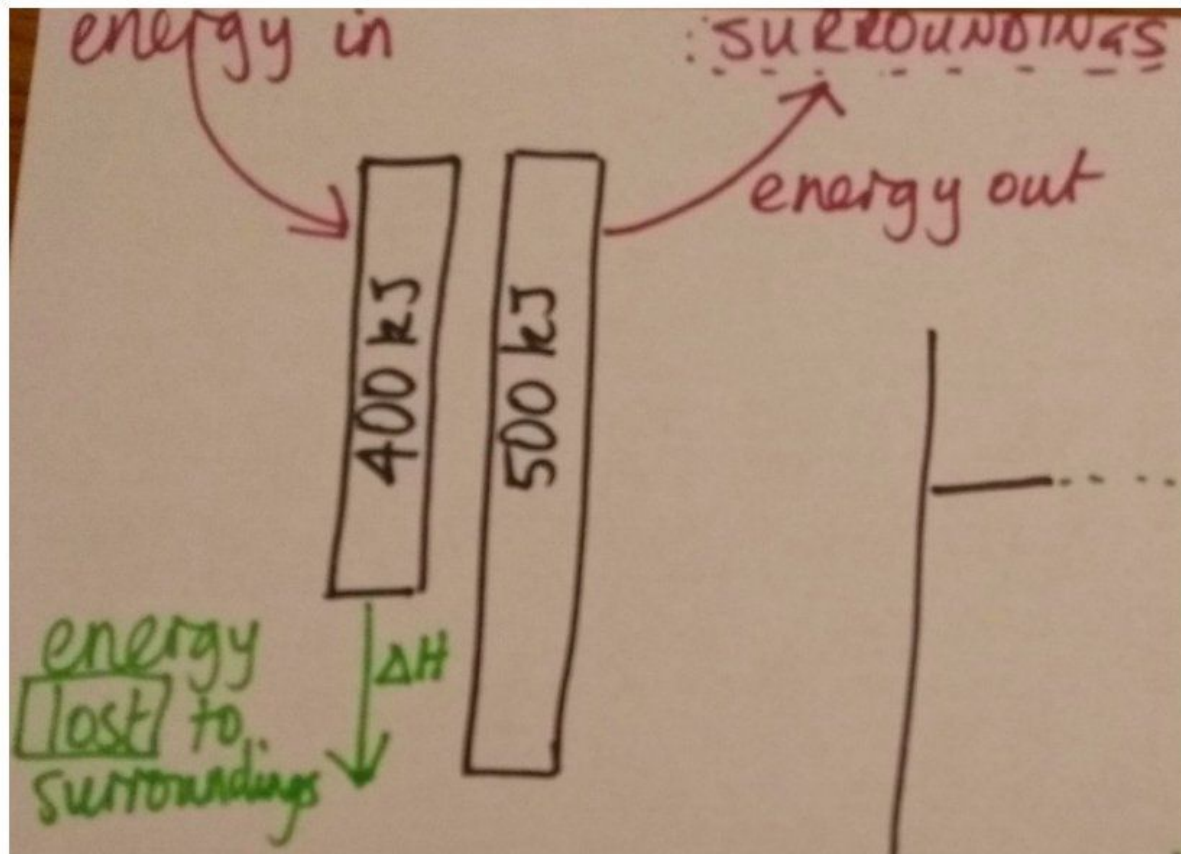 energy in
SURROUNDINGS
energy out
400 kJ
500 kJ
energy
lost to
surroundings
ΔH